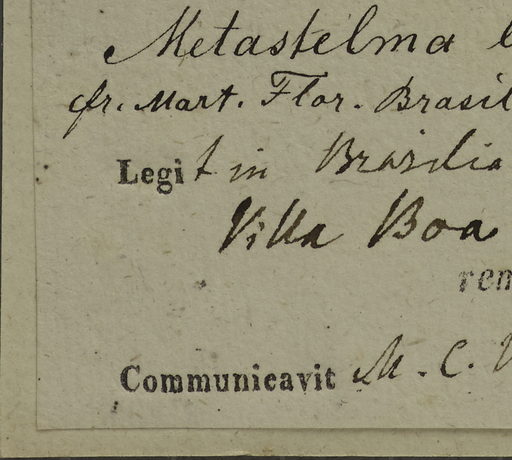 Metastelma
cfr. Mart. Flor. Brasil
Legit in Brasilia
Villa Boa
rem
Communicavit M. C.